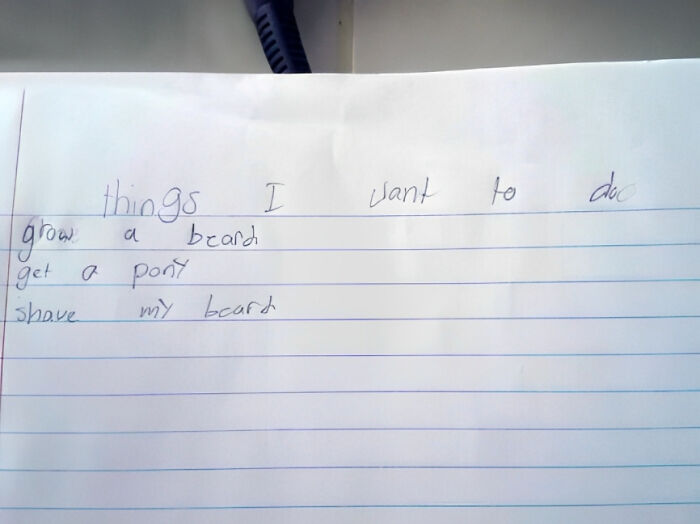 things I want to do
grow a beard
get a pony
shave my beard